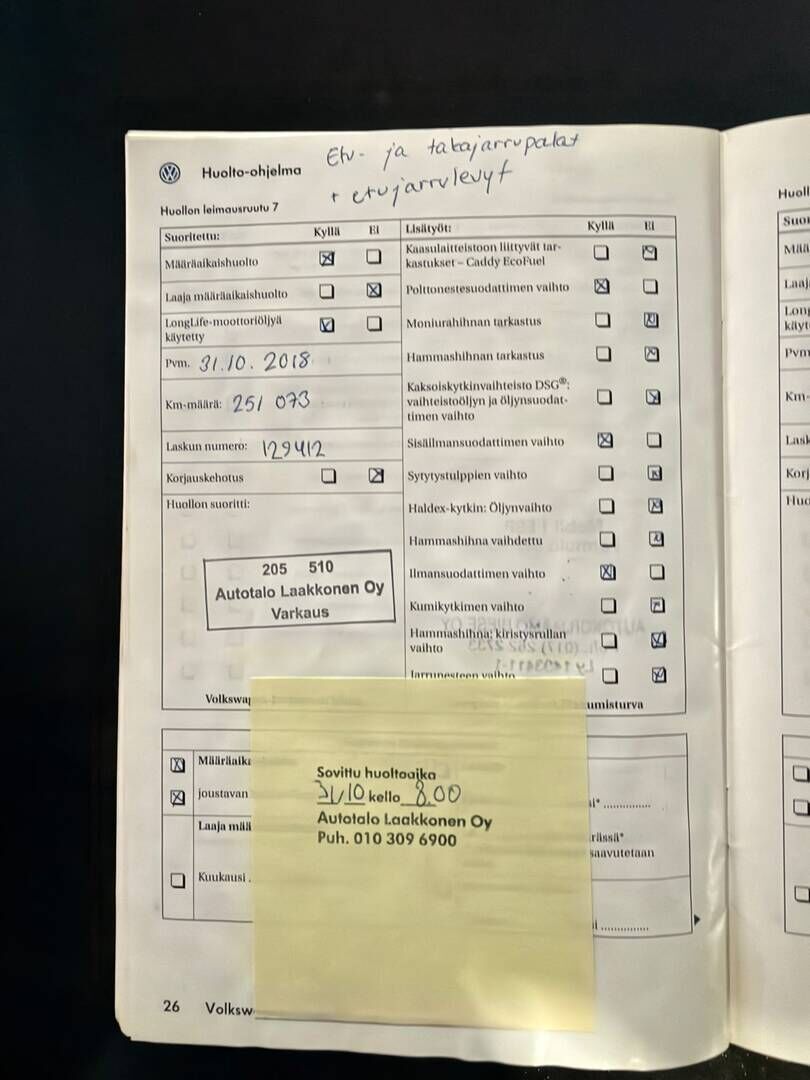 Etu- ja takajarrupalat
+ etujarrulevyt
Huolto-ohjelma
Huollon leimausruutu 7
Suoritettu: Kyllä Ei
Määräaikaishuolto
Laaja määräaikaishuolto
LongLife-moottoriöljyä
käytetty
Pvm. 31.10.2018
Km-määrä: 251 073
Laskun numero: 129412
Korjauskehotus
Huollon suoritti:
205 510
Autotalo Laakkonen Oy
Varkaus
Volkswa
Lisätyöt: Kyllä Ei
Kaasulaitteistoon liittyvät tar-
kastukset – Caddy EcoFuel
Polttonestesuodattimen vaihto
Moniurahihnan tarkastus
Hammashihnan tarkastus
Kaksoiskytkinvaihteisto DSG®:
vaihteistoöljyn ja öljynsuodat-
timen vaihto
Sisäilmansuodattimen vaihto
Sytytystulppien vaihto
Haldex-kytkin: Öljynvaihto
Hammashihna vaihdettu
Ilmansuodattimen vaihto
Kumikytkimen vaihto
Hammashihna; kiristysrullan
vaihto
Jarrunesteen vaihto
umisturva
Määräaik
joustavan
Laaja mää
Kuukausi .
Sovittu huoltoaika
31/10 kello 8.00
Autotalo Laakkonen Oy
Puh. 010 309 6900
rässä*
saavutetaan
26 Volksw
Huoll
Suor
Mää
Laaj
Long
käyt
Pvm
Km-
Lask
Korj
Huo